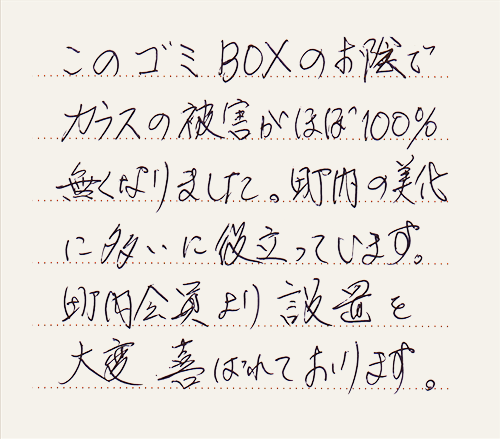 このゴミBOXのお陰で
カラスの被害がほぼ100%
無くなりました。町内の美化
に多いに役立っています。
町内会員より設置を
大変喜ばれております。